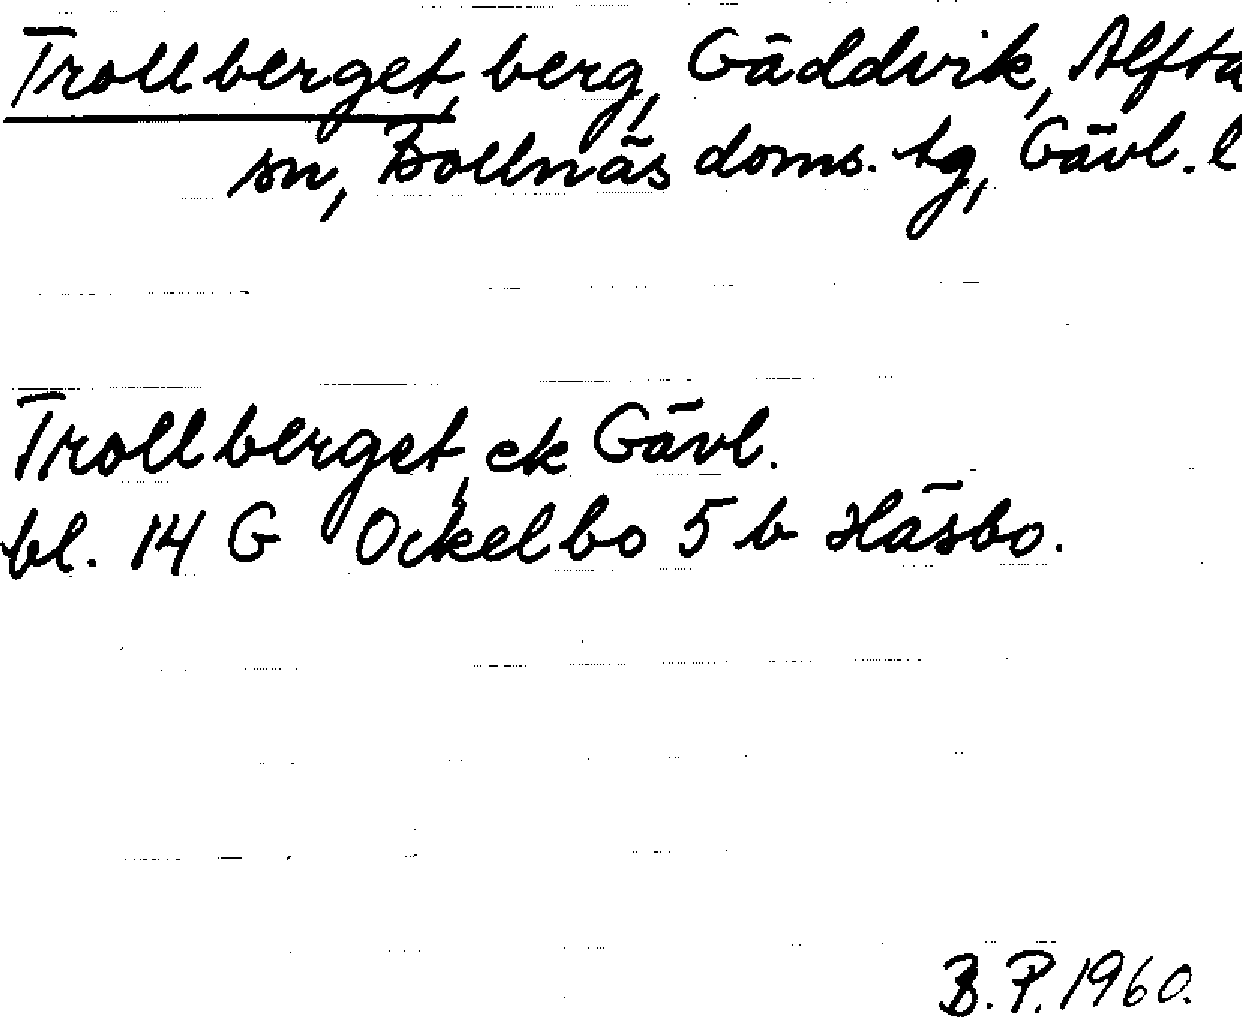 Trollberget, berg, Gäddvik, Alfta
sn, Bollnäs doms. tg, Gävl. l
Trollberget, ek Gävl.
bl. 14 G Ockelbo 5 b Häsbo.
B. P. 1960.